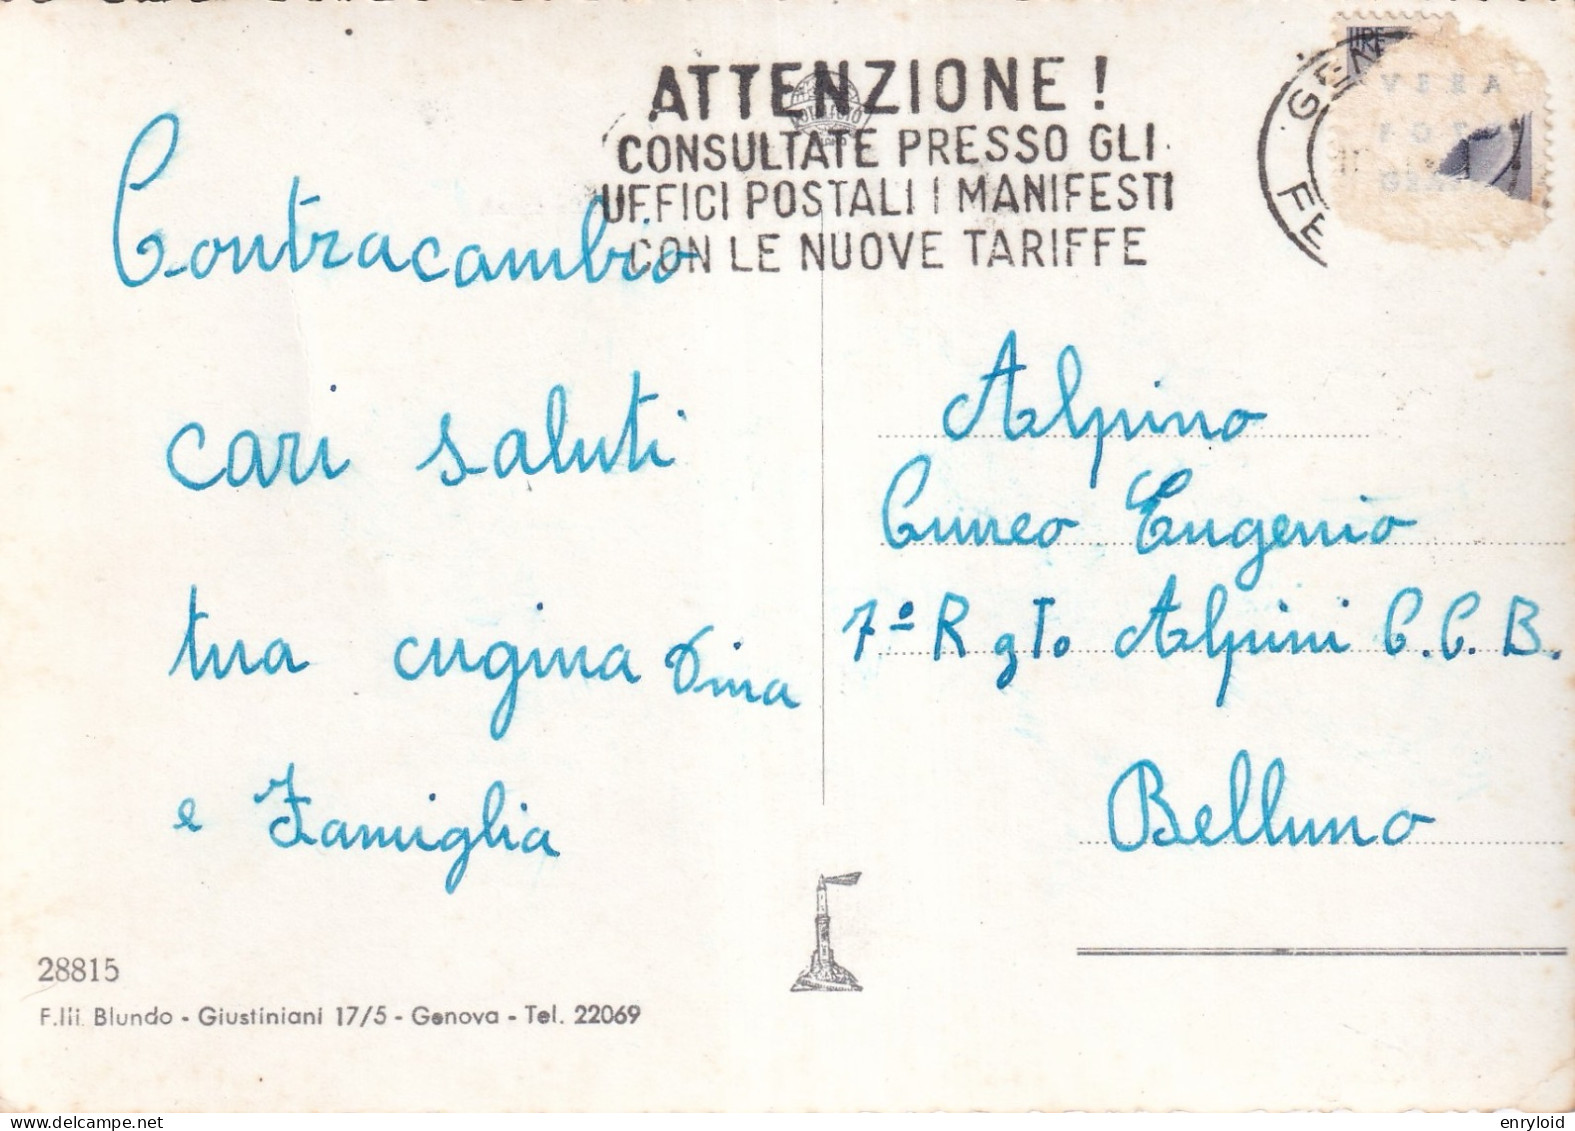 ATTENZIONE !
CONSULTATE PRESSO GLI
UFFICI POSTALI I MANIFESTI
CON LE NUOVE TARIFFE
LIRE
Contracambio
cari saluti
tua cugina Dina
e Famiglia
Alpino
Cuneo Eugenio
7º Rgto Alpini C.C.B.
Belluno
28815
F.lli Blundo - Giustiniani 17/5 - Genova - Tel. 22069
delcampe.net
enryloid